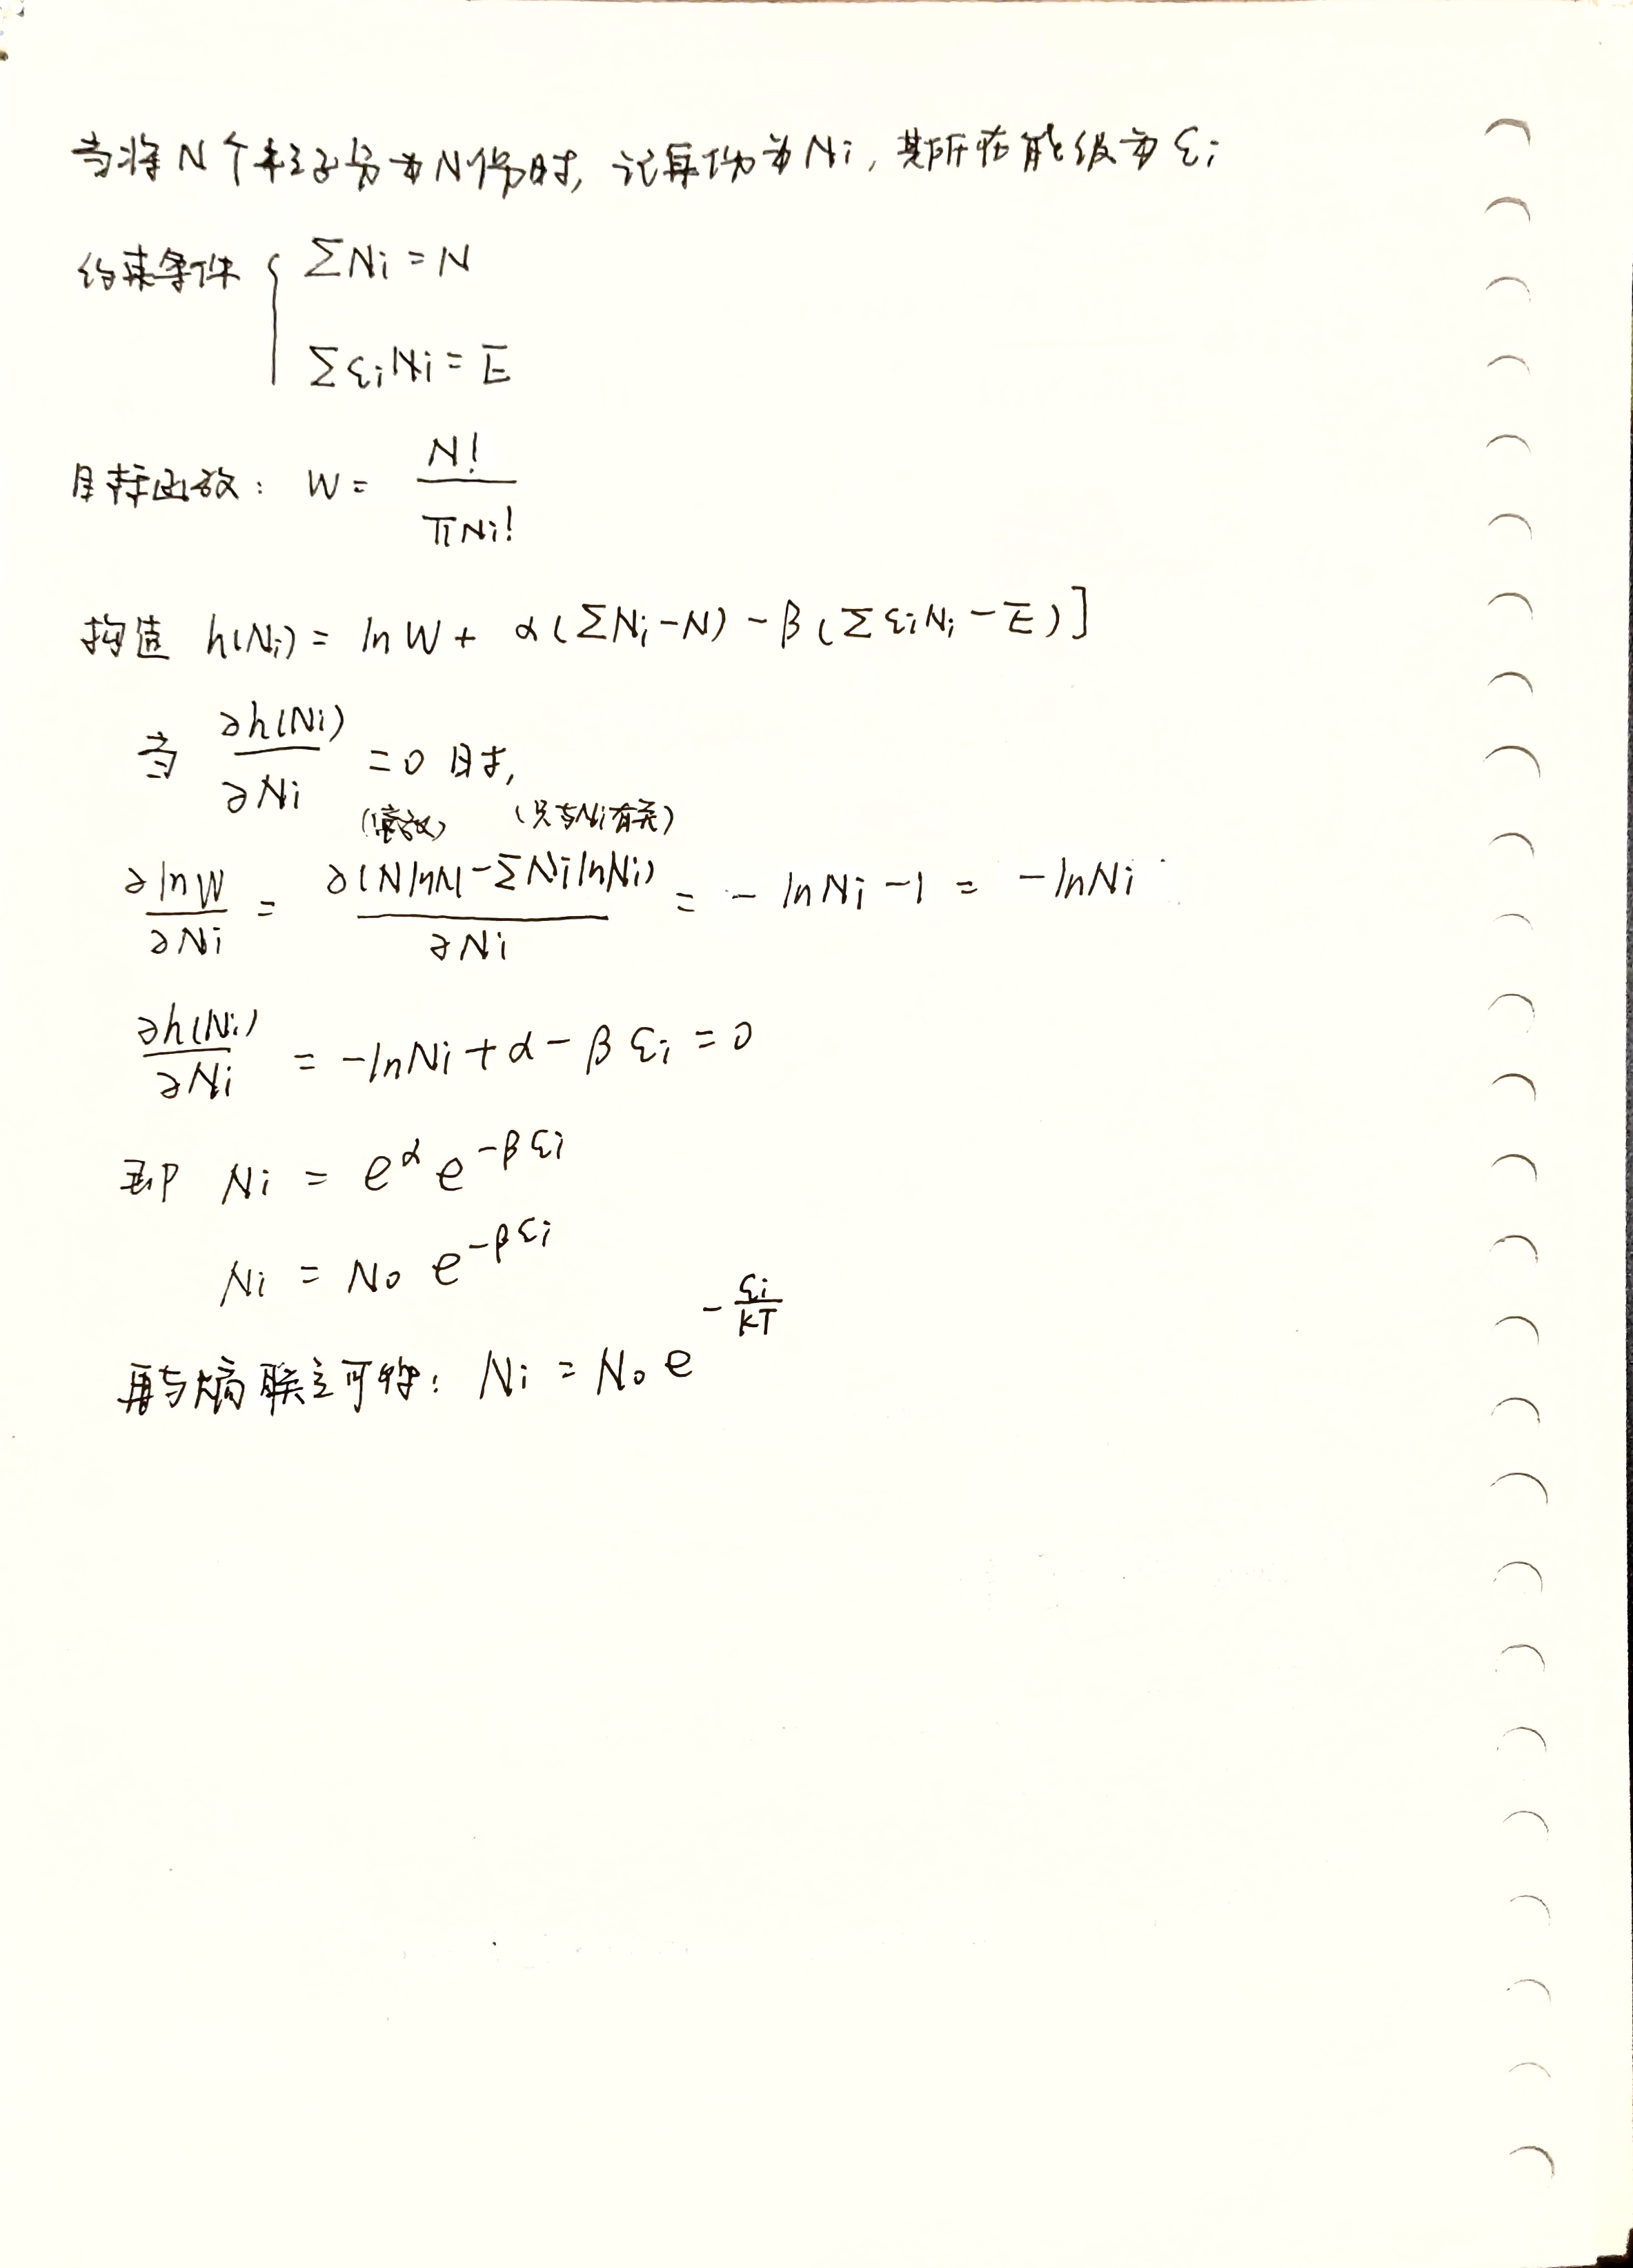 当将N个粒子分为N份时, 记每份为Ni, 其所在能级为εi
约束条件 { ΣNi = N
ΣεiNi = E
目标函数: W = N! / ΠNi!
构造 h(Ni) = lnW + α(ΣNi-N) - β(ΣεiNi-E)]
当 ∂h(Ni)/∂Ni = 0 时,
(常数) (只与Ni有关)
∂lnW/∂Ni = ∂(NlnN-ΣNilnNi)/∂Ni = -lnNi-1 = -lnNi
∂h(Ni)/∂Ni = -lnNi+α-βεi = 0
即 Ni = e^α e^(-βεi)
Ni = N0 e^(-βεi)
再与熵联立可得: Ni = N0 e^(-εi/kT)